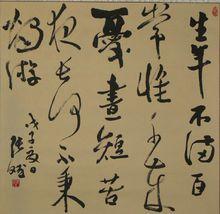 生年不滿百
常懷千歲
憂晝短苦
夜長何不秉
燭游
戊子夏日